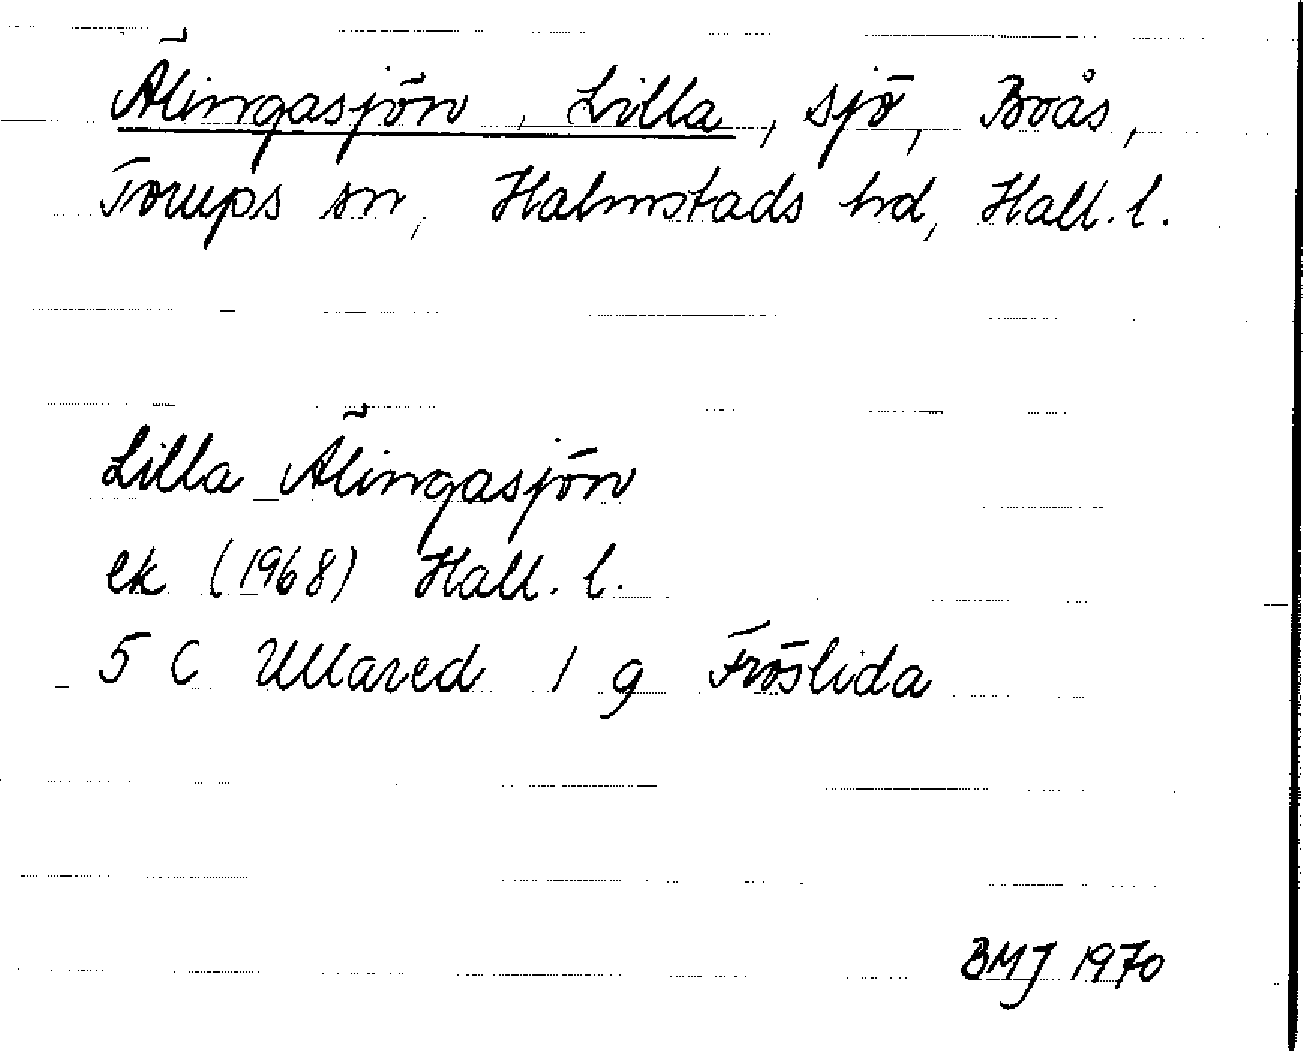 Älingasjön, Lilla, sjö, Boås,
Torups sn, Halmstads hd, Hall. l.
Lilla Älingasjön
ek (1968) Hall. l.
5 C Ullared 1 g Fröslida
BMJ 1970